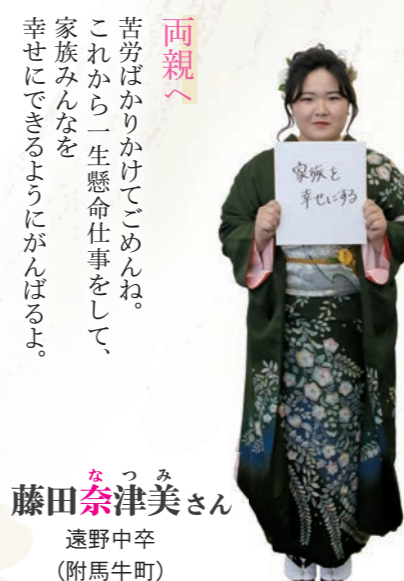 両親へ
苦労ばかりかけてごめんね。
これから一生懸命仕事をして、
家族みんなを
幸せにできるようにがんばるよ。
家族を
幸せにする
なつみ
藤田奈津美さん
遠野中卒
（附馬牛町）